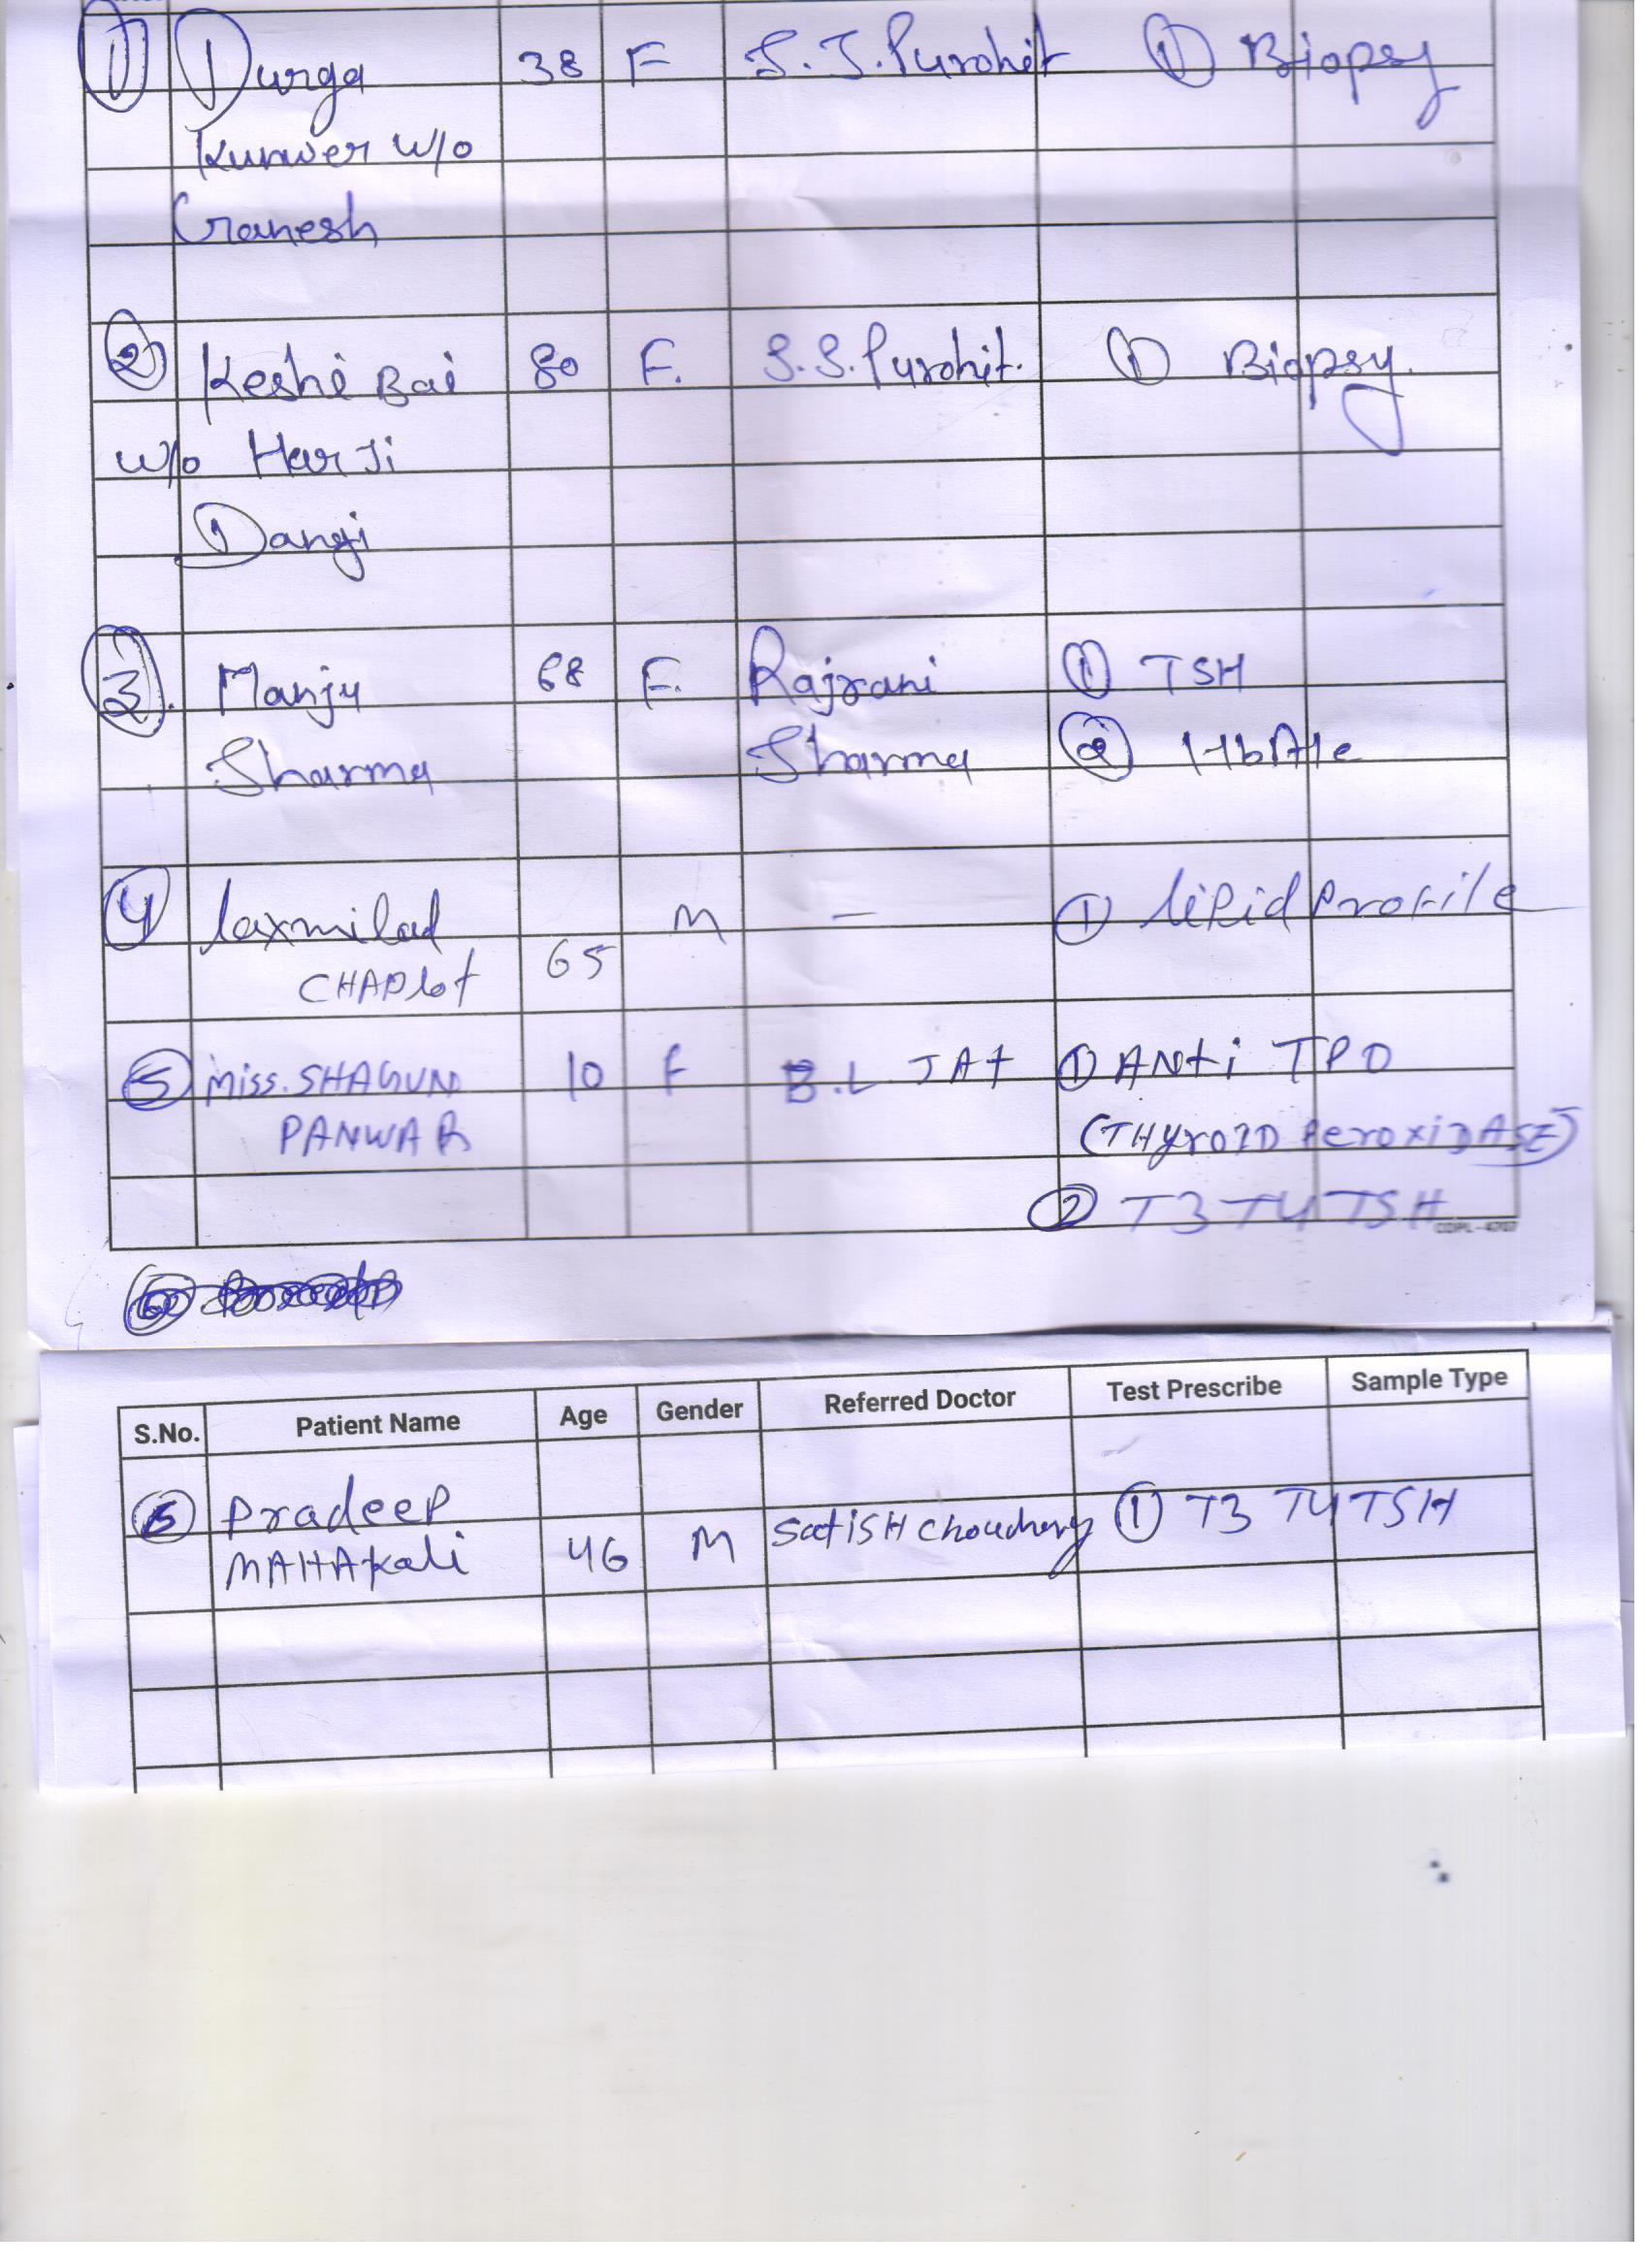 ① Durga 38 F S.S. Purohit ① Biopsy
Kunwer w/o
Ganesh
② Keshi Bai 80 F. S.S. Purohit. ① Biopsy.
w/o Har Ji
Dangi
③. Manju 68 F. Rajrani ① TSH
Sharma Sharma ② HbA1c
④ laxmilal M – ① liPid Profile
CHAPlot 65
⑤ Miss. SHAGUN 10 F B.L JAt ① ANti TPO
PANWAR (THyroID PeroxiDASE)
② T3 T4 TSH
CDPL - 4707
S.No. Patient Name Age Gender Referred Doctor Test Prescribe Sample Type
⑥ PradeeP
MAHAkali 46 M SatiSH Choudhery ① T3 T4 TSH